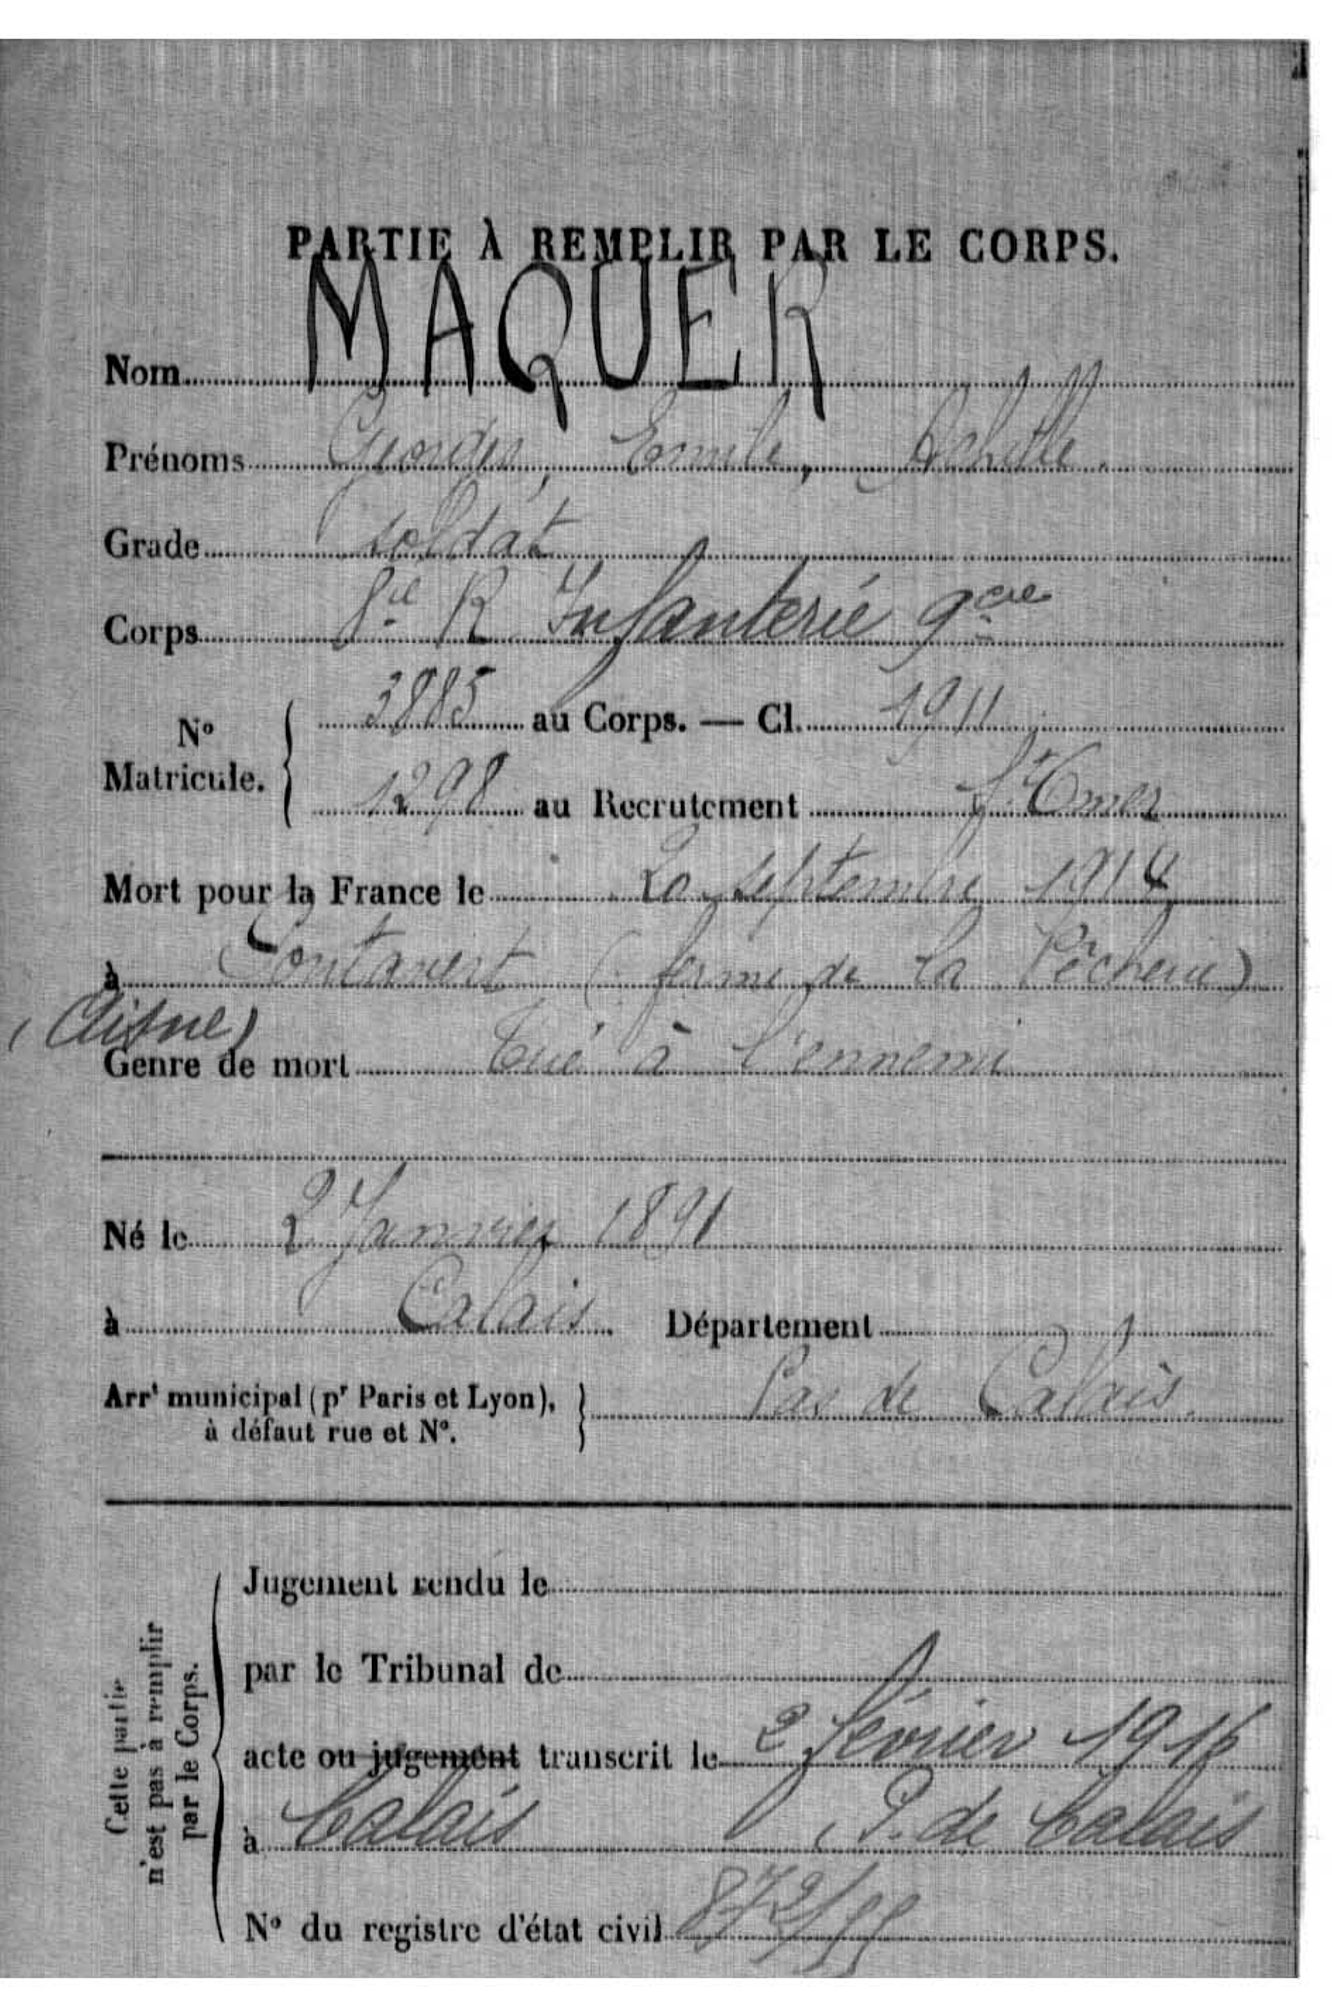 PARTIE À REMPLIR PAR LE CORPS.
Nom MAQUER
Prénoms Georges, Emile, Achille.
Grade soldat
Corps 8e R Infanterie 9cie
No Matricule. 3885 au Corps. — Cl. 1911
1298 au Recrutement St Omer
Mort pour la France le 20 septembre 1914
à Pontavert (ferme de la Pêcherie)
(Aisne)
Genre de mort Tué à l'ennemi
Né le 2 Janvier 1891
à Calais Département
Arrt municipal (pr Paris et Lyon), à défaut rue et No. Pas de Calais.
Cette partie n'est pas à remplir par le Corps.
Jugement rendu le
par le Tribunal de
acte ou jugement transcrit le 2 février 1916
à Calais P. de Calais
No du registre d'état civil 872/55